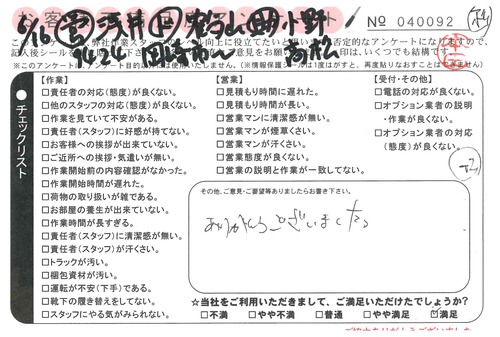 No 040092
※このアンケートはアンケート目的以外には使用いたしません。(※情報保護シールは1度はがすと、再度貼りなおすことは出来ません)
チェックリスト
【作業】
□責任者の対応(態度)が良くない。
□他のスタッフの対応(態度)が良くない。
□作業を見ていて不安がある。
□責任者(スタッフ)に好感が持てない。
□お客様への挨拶が出来ていない。
□ご近所への挨拶・気遣いが無い。
□作業開始前の内容確認がなかった。
□作業開始時間が遅れた。
□荷物の取り扱いが雑である。
□お部屋の養生が出来ていない。
□作業時間が長すぎる。
□責任者(スタッフ)に清潔感が無い。
□責任者(スタッフ)が汗くさい。
□トラックが汚い。
□梱包資材が汚い。
□運転が不安(下手)である。
□靴下の履き替えをしてない。
□スタッフにやる気がみられない。
【営業】
□見積もり時間に遅れた。
□見積もり時間が長い。
□営業マンに清潔感が無い。
□営業マンが煙草くさい。
□営業マンが汗くさい。
□営業態度が良くない。
□営業の説明と作業が一致してない。
【受付・その他】
□電話の対応が良くない。
□オプション業者の説明
・作業が良くない。
□オプション業者の対応
(態度)が良くない。
その他、ご意見・ご要望等ありましたらお書き下さい。
ありがとうございました。
☆当社をご利用いただきまして、ご満足いただけたでしょうか?
□不満 □やや不満 □普通 □やや満足 ☑満足